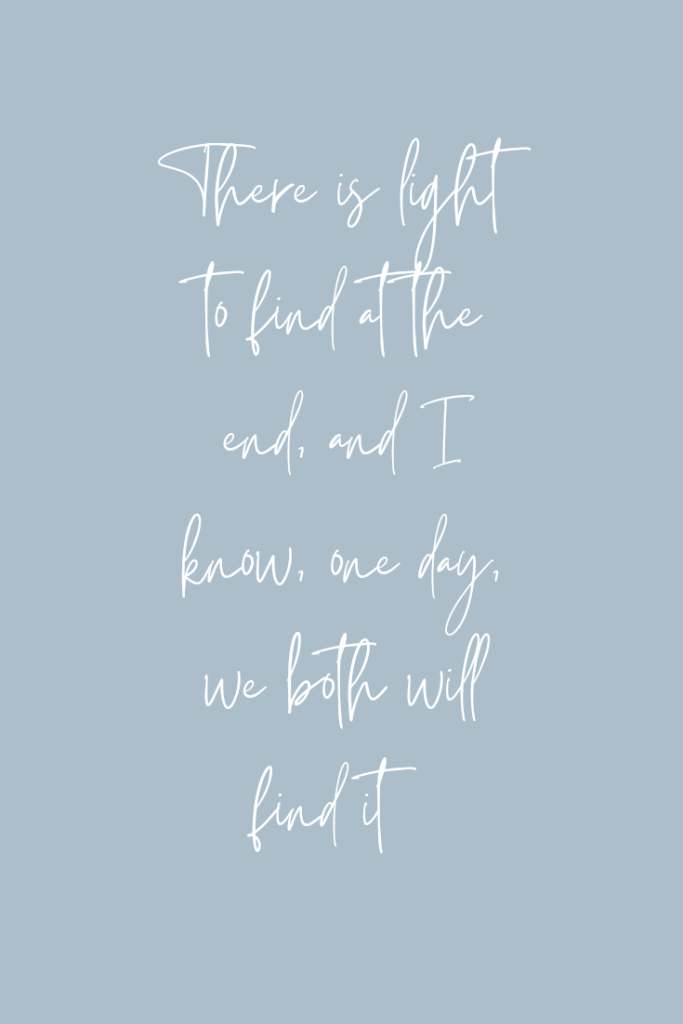 There is light
to find at the
end, and I
know, one day,
we both will
find it